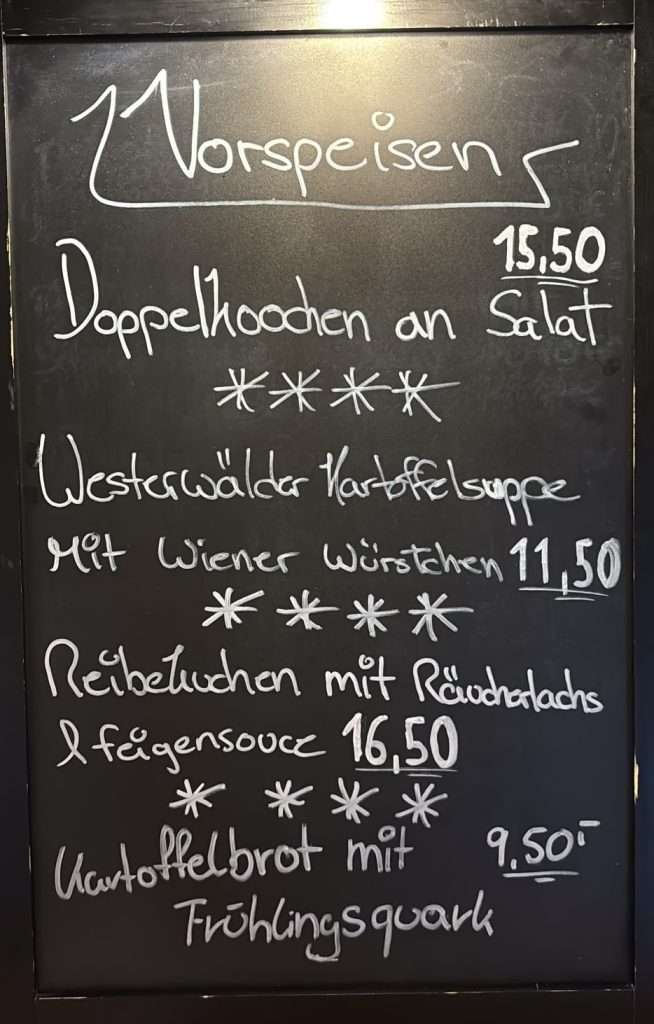 Vorspeisen
15,50
Doppelkoochen an Salat
****
Westerwälder Kartoffelsuppe
Mit Wiener Würstchen 11,50
****
Reibekuchen mit Räucherlachs
& feigensouce 16,50
****
Kartoffelbrot mit 9,50.-
Frühlingsquark